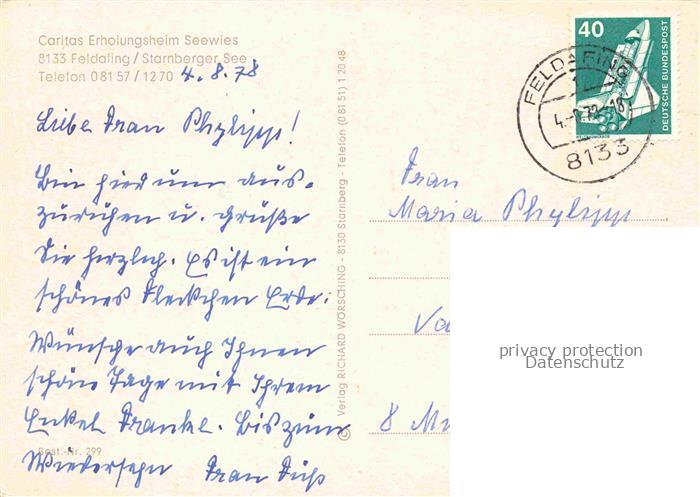 Caritas Erholungsheim Seewies
8133 Feldafing / Starnberger See
Telefon 08157 / 1270 4.8.78
Liebe Frau Phylipp!
Bin hier um aus-
zuruhen u. grüße
Sie herzlich. Es ist ein
schönes Fleckchen Erde.
Wünsche auch Ihnen
schöne Tage mit Ihrem
Enkel Franke. Bis zum
Best.-Nr. 299
Wiedersehn Frau
© Verlag RICHARD WÖRSCHING - 8130 Starnberg - Telefon (08151) 12048
40
DEUTSCHE BUNDESPOST
FELDAFING
8133
Frau
Maria Phylipp
8 Mü
privacy protection
Datenschutz